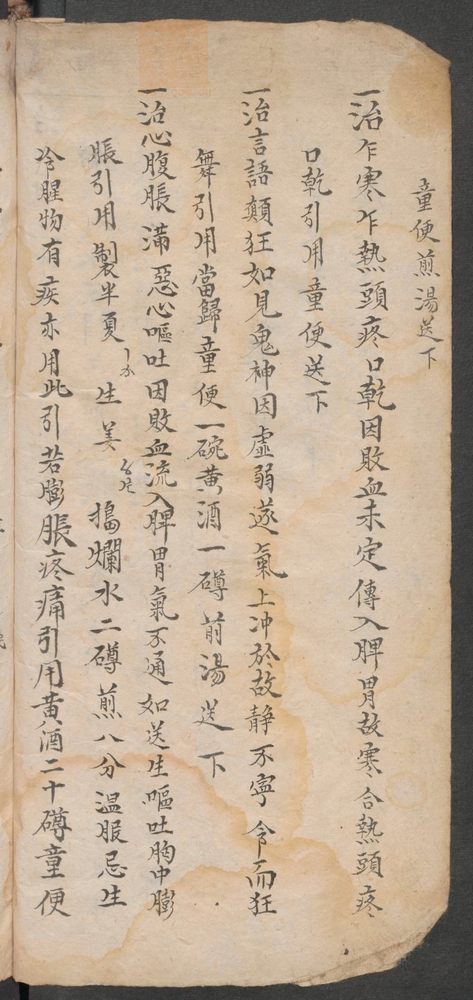 童便煎湯送下
一治乍寒乍熱頭疼口乾因敗血未定傳入脾胃故寒合熱頭疼
口乾引用童便送下
一治言語顛狂如見鬼神因虛弱遂氣上冲於故静不寧令而狂
舞引用當歸童便一碗黄酒一磚前湯送下
一治心腹脹滿惡心嘔吐因敗血流入脾胃氣不通如送生嘔吐胸中膨
脹引用製半夏 生美 搗爛水二磚煎八分温服忌生
冷腥物有疾亦用此引若膨脹疼痛引用黄酒二十磚童便